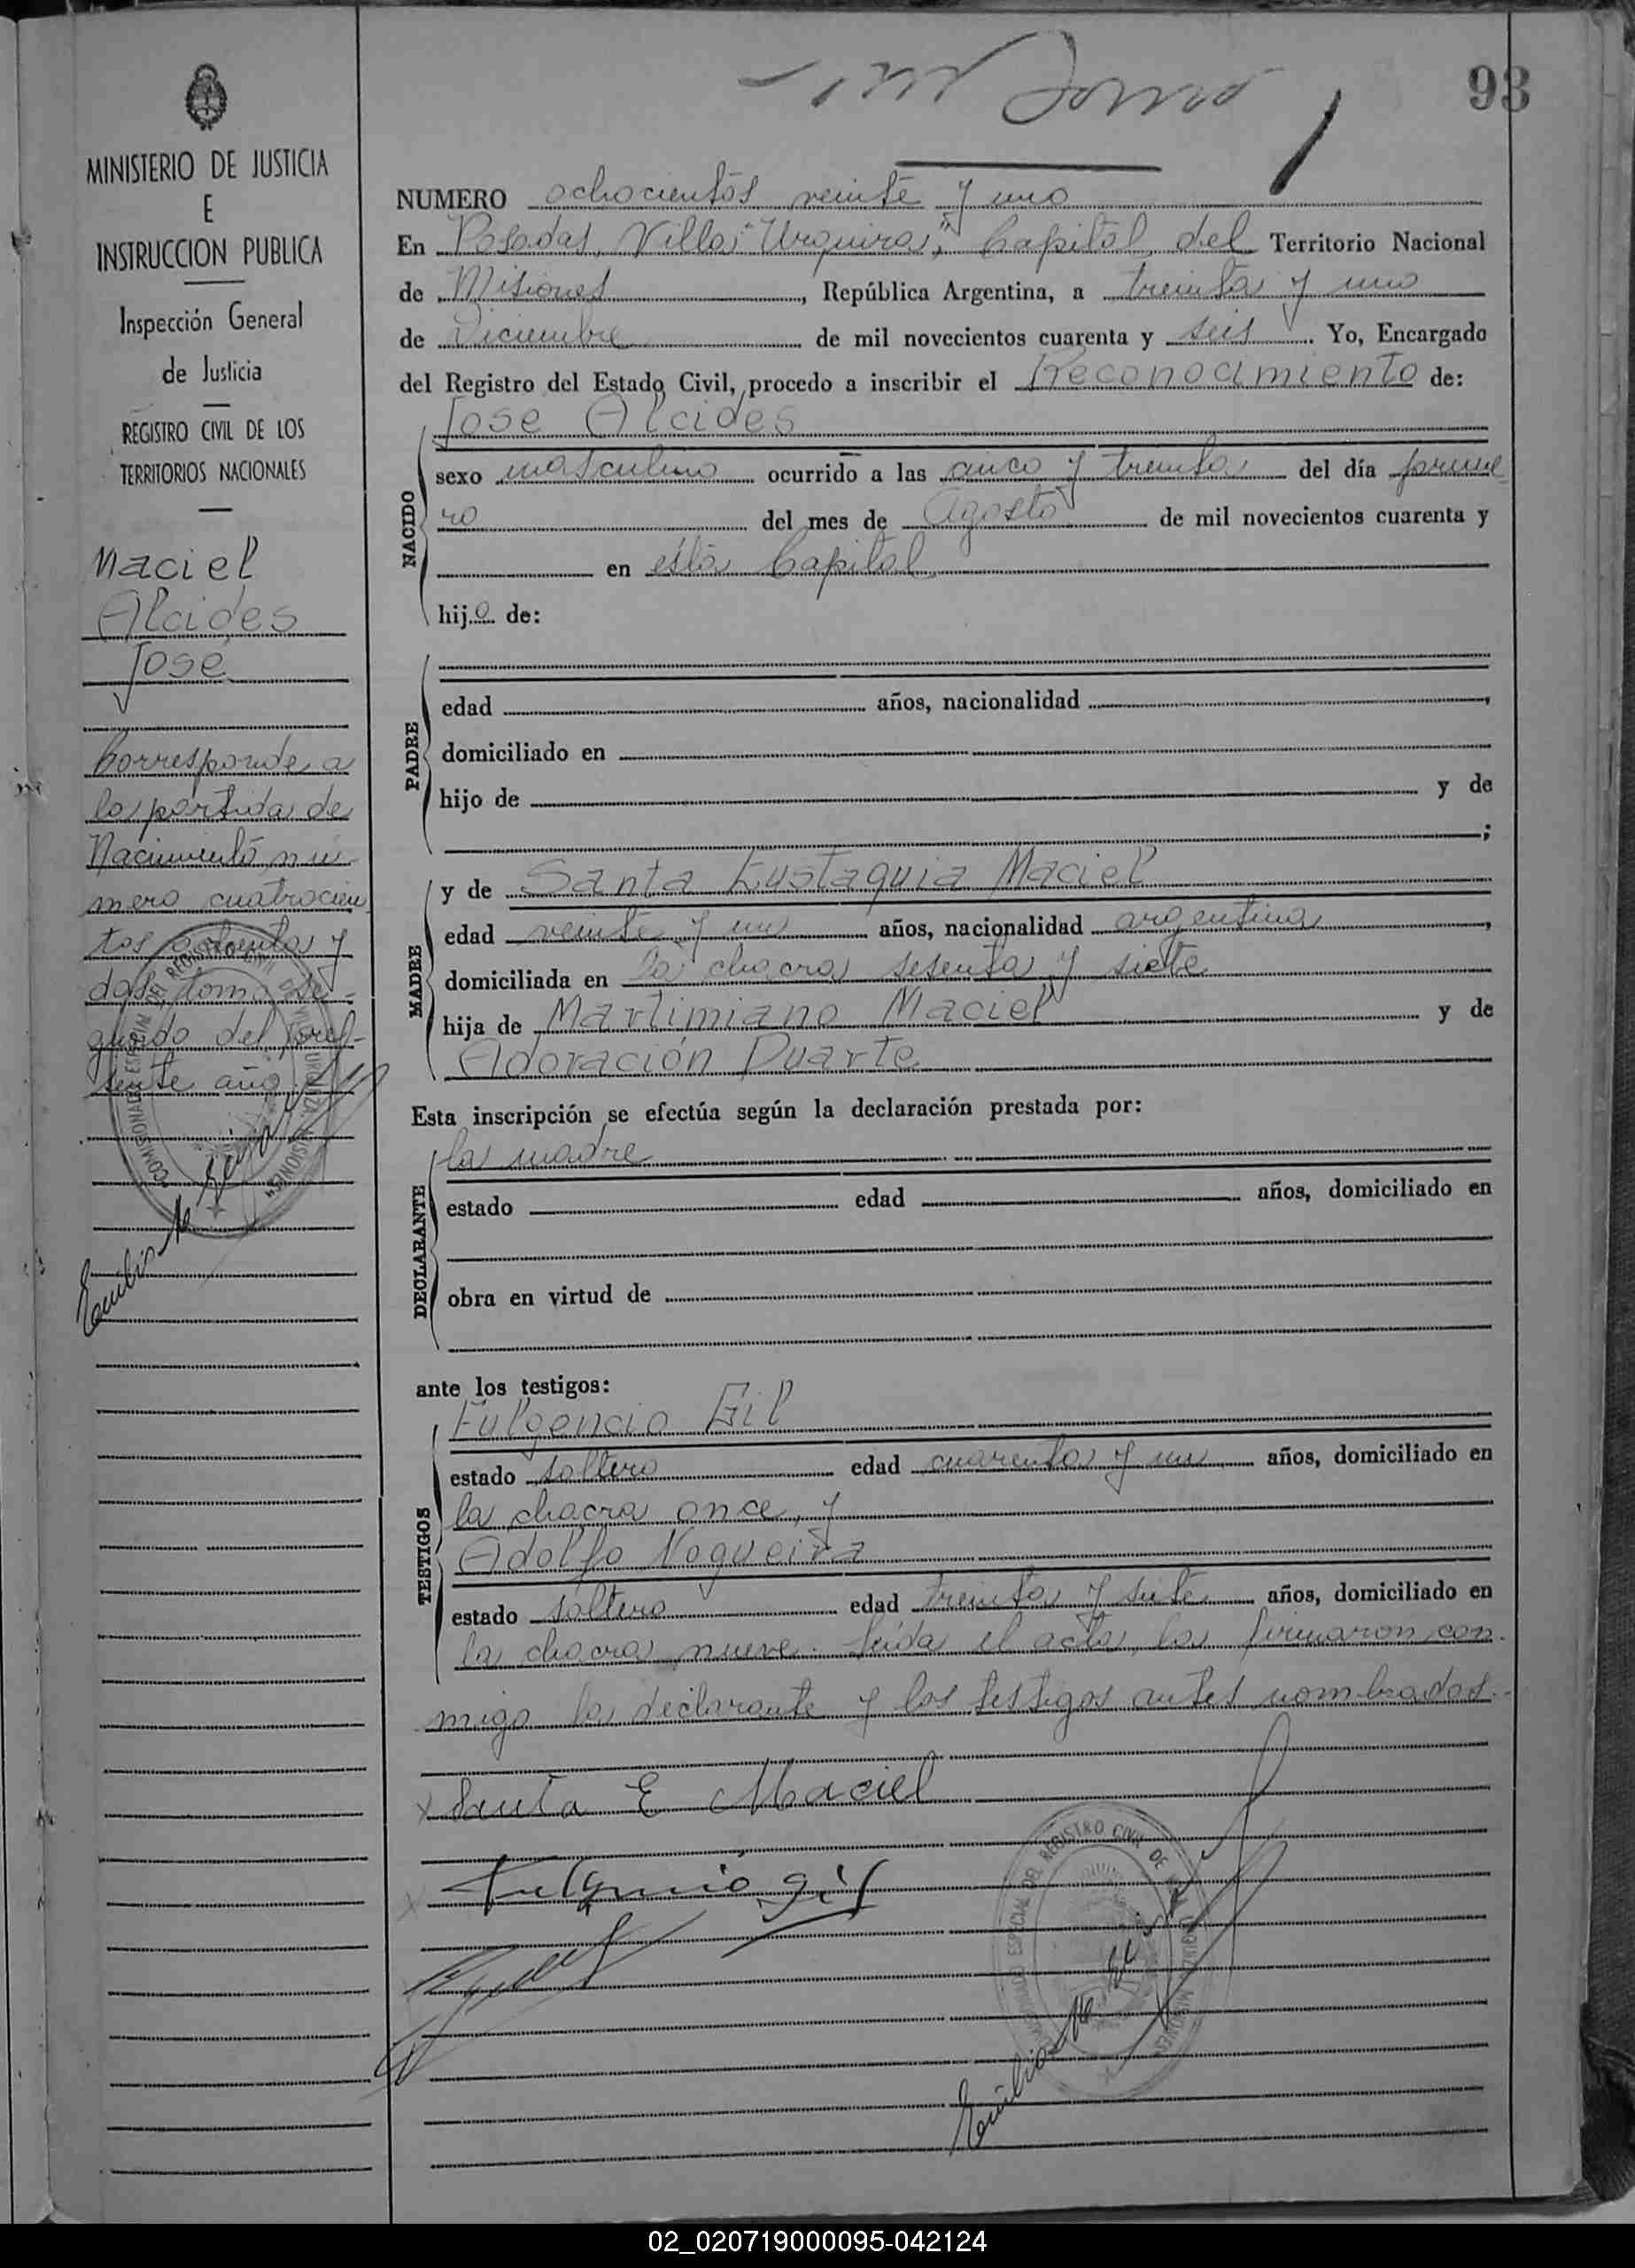 93
MINISTERIO DE JUSTICIA
E
INSTRUCCION PUBLICA
Inspección General
de Justicia
REGISTRO CIVIL DE LOS
TERRITORIOS NACIONALES
Maciel
Alcides
José
Corresponde a
la partida de
Nacimiento nú
mero cuatrocien
tos ochenta y
dos, tomo se-
gundo del pre-
sente año
NUMERO ochocientos veinte y uno
En Posadas, Villa "Urquiza", Capital del Territorio Nacional
de Misiones, República Argentina, a treinta y uno
de Diciembre de mil novecientos cuarenta y seis. Yo, Encargado
del Registro del Estado Civil, procedo a inscribir el Reconocimiento de:
José Alcides
NACIDO
sexo masculino ocurrido a las cinco y treinta del día prime
ro del mes de Agosto de mil novecientos cuarenta y
en ésta Capital
hijo de:
PADRE
edad años, nacionalidad ,
domiciliado en
hijo de y de
;
MADRE
y de Santa Eustaquia Maciel
edad veinte y un años, nacionalidad argentina,
domiciliada en la chacra sesenta y siete
hija de Martimiano Maciel y de
Adoración Duarte
Esta inscripción se efectúa según la declaración prestada por:
DECLARANTE
la madre
estado edad años, domiciliado en
obra en virtud de
ante los testigos:
TESTIGOS
Fulgencio Gil
estado soltero edad cuarenta y un años, domiciliado en
la chacra once, y
Adolfo Nogueira
estado soltero edad treinta y siete años, domiciliado en
la chacra nueve. Leída el acta, la firmaron con-
migo la declarante y los testigos antes nombrados.
Santa E Maciel
Fulgencio Gil
02_020719000095-042124